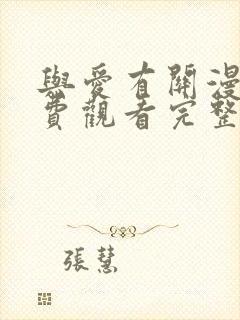 與愛有關漫
費觀看完整
張慧